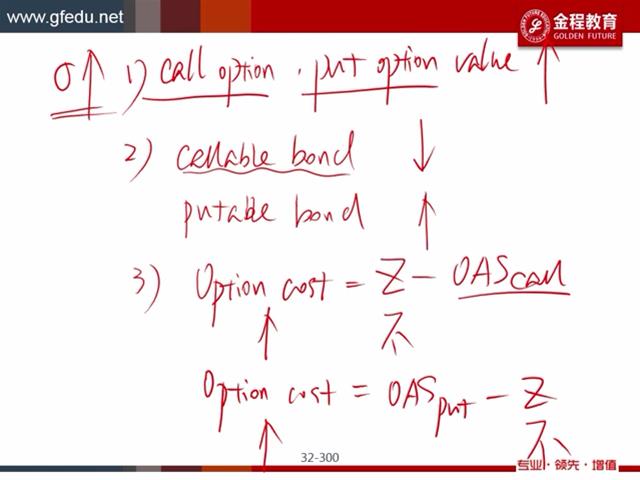 www.gfedu.net
金程教育
GOLDEN FUTURE
σ↑ 1) call option . put option value ↑
2) callable bond ↓
putable bond ↑
3) Option cost = Z - OAScall
↑ 不
Option cost = OASput - Z
↑ 不
32-300
专业·领先·增值